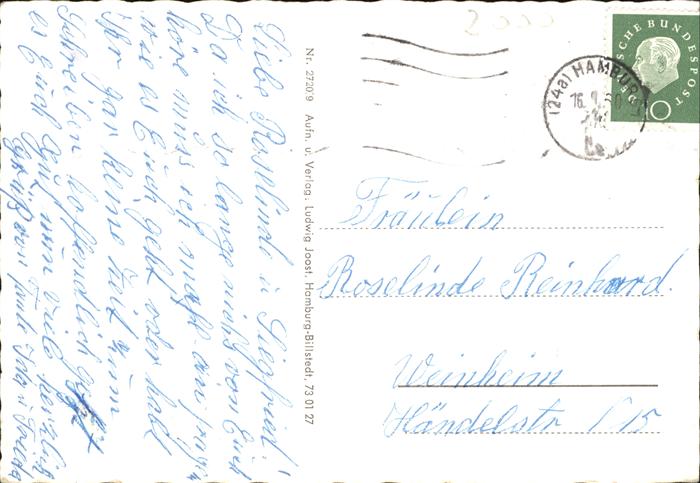 2000
DEUTSCHE BUNDESPOST
10
(24a) HAMBURG
Liebe Roselinde u Siegfried!
Da ich so lange nichts von Euch
höre muss ich mahl anfragen
wie es Euch geht oder habt
ihr gar keine Zeit zum
Schreiben hoffendlich geht
es Euch gut nun viele herzliche
Grüße von Tante
Nr. 27209 Aufn. u. Verlag: Ludwig Joost, Hamburg-Billstedt, 73 01 27
Fräulein
Roselinde Reinhard.
Weinheim
Händelstr